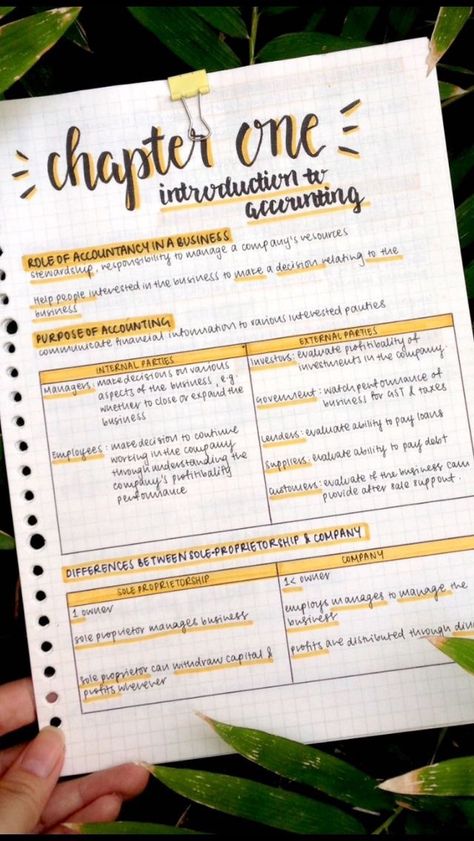 chapter one
introduction to
accounting
ROLE OF ACCOUNTANCY IN A BUSINESS
stewardship, responsibility to manage a company's resources
Help people interested in the business to make a decision relating to the
business
PURPOSE OF ACCOUNTING
communicate financial information to various interested parties
INTERNAL PARTIES
Managers: make decisions on various
aspects of the business, e.g.
whether to close or expand the
business
Employees: make decision to continue
working in the company
through understanding the
company's profitibality
performance
EXTERNAL PARTIES
Investors: evaluate profitibality of
investments in the company
Government: watch performance of
business for GST & taxes
Lenders: evaluate ability to pay loans
Suppliers: evaluate ability to pay debt
Customers: evaluate if the business can
provide after sale support.
DIFFERENCES BETWEEN SOLE-PROPRIETORSHIP & COMPANY
SOLE PROPRIETORSHIP
1 owner
sole proprietor manages business
sole proprietor can withdraw capital &
profits whenever
COMPANY
1< owner
employs manages to manage the
business
profits are distributed through